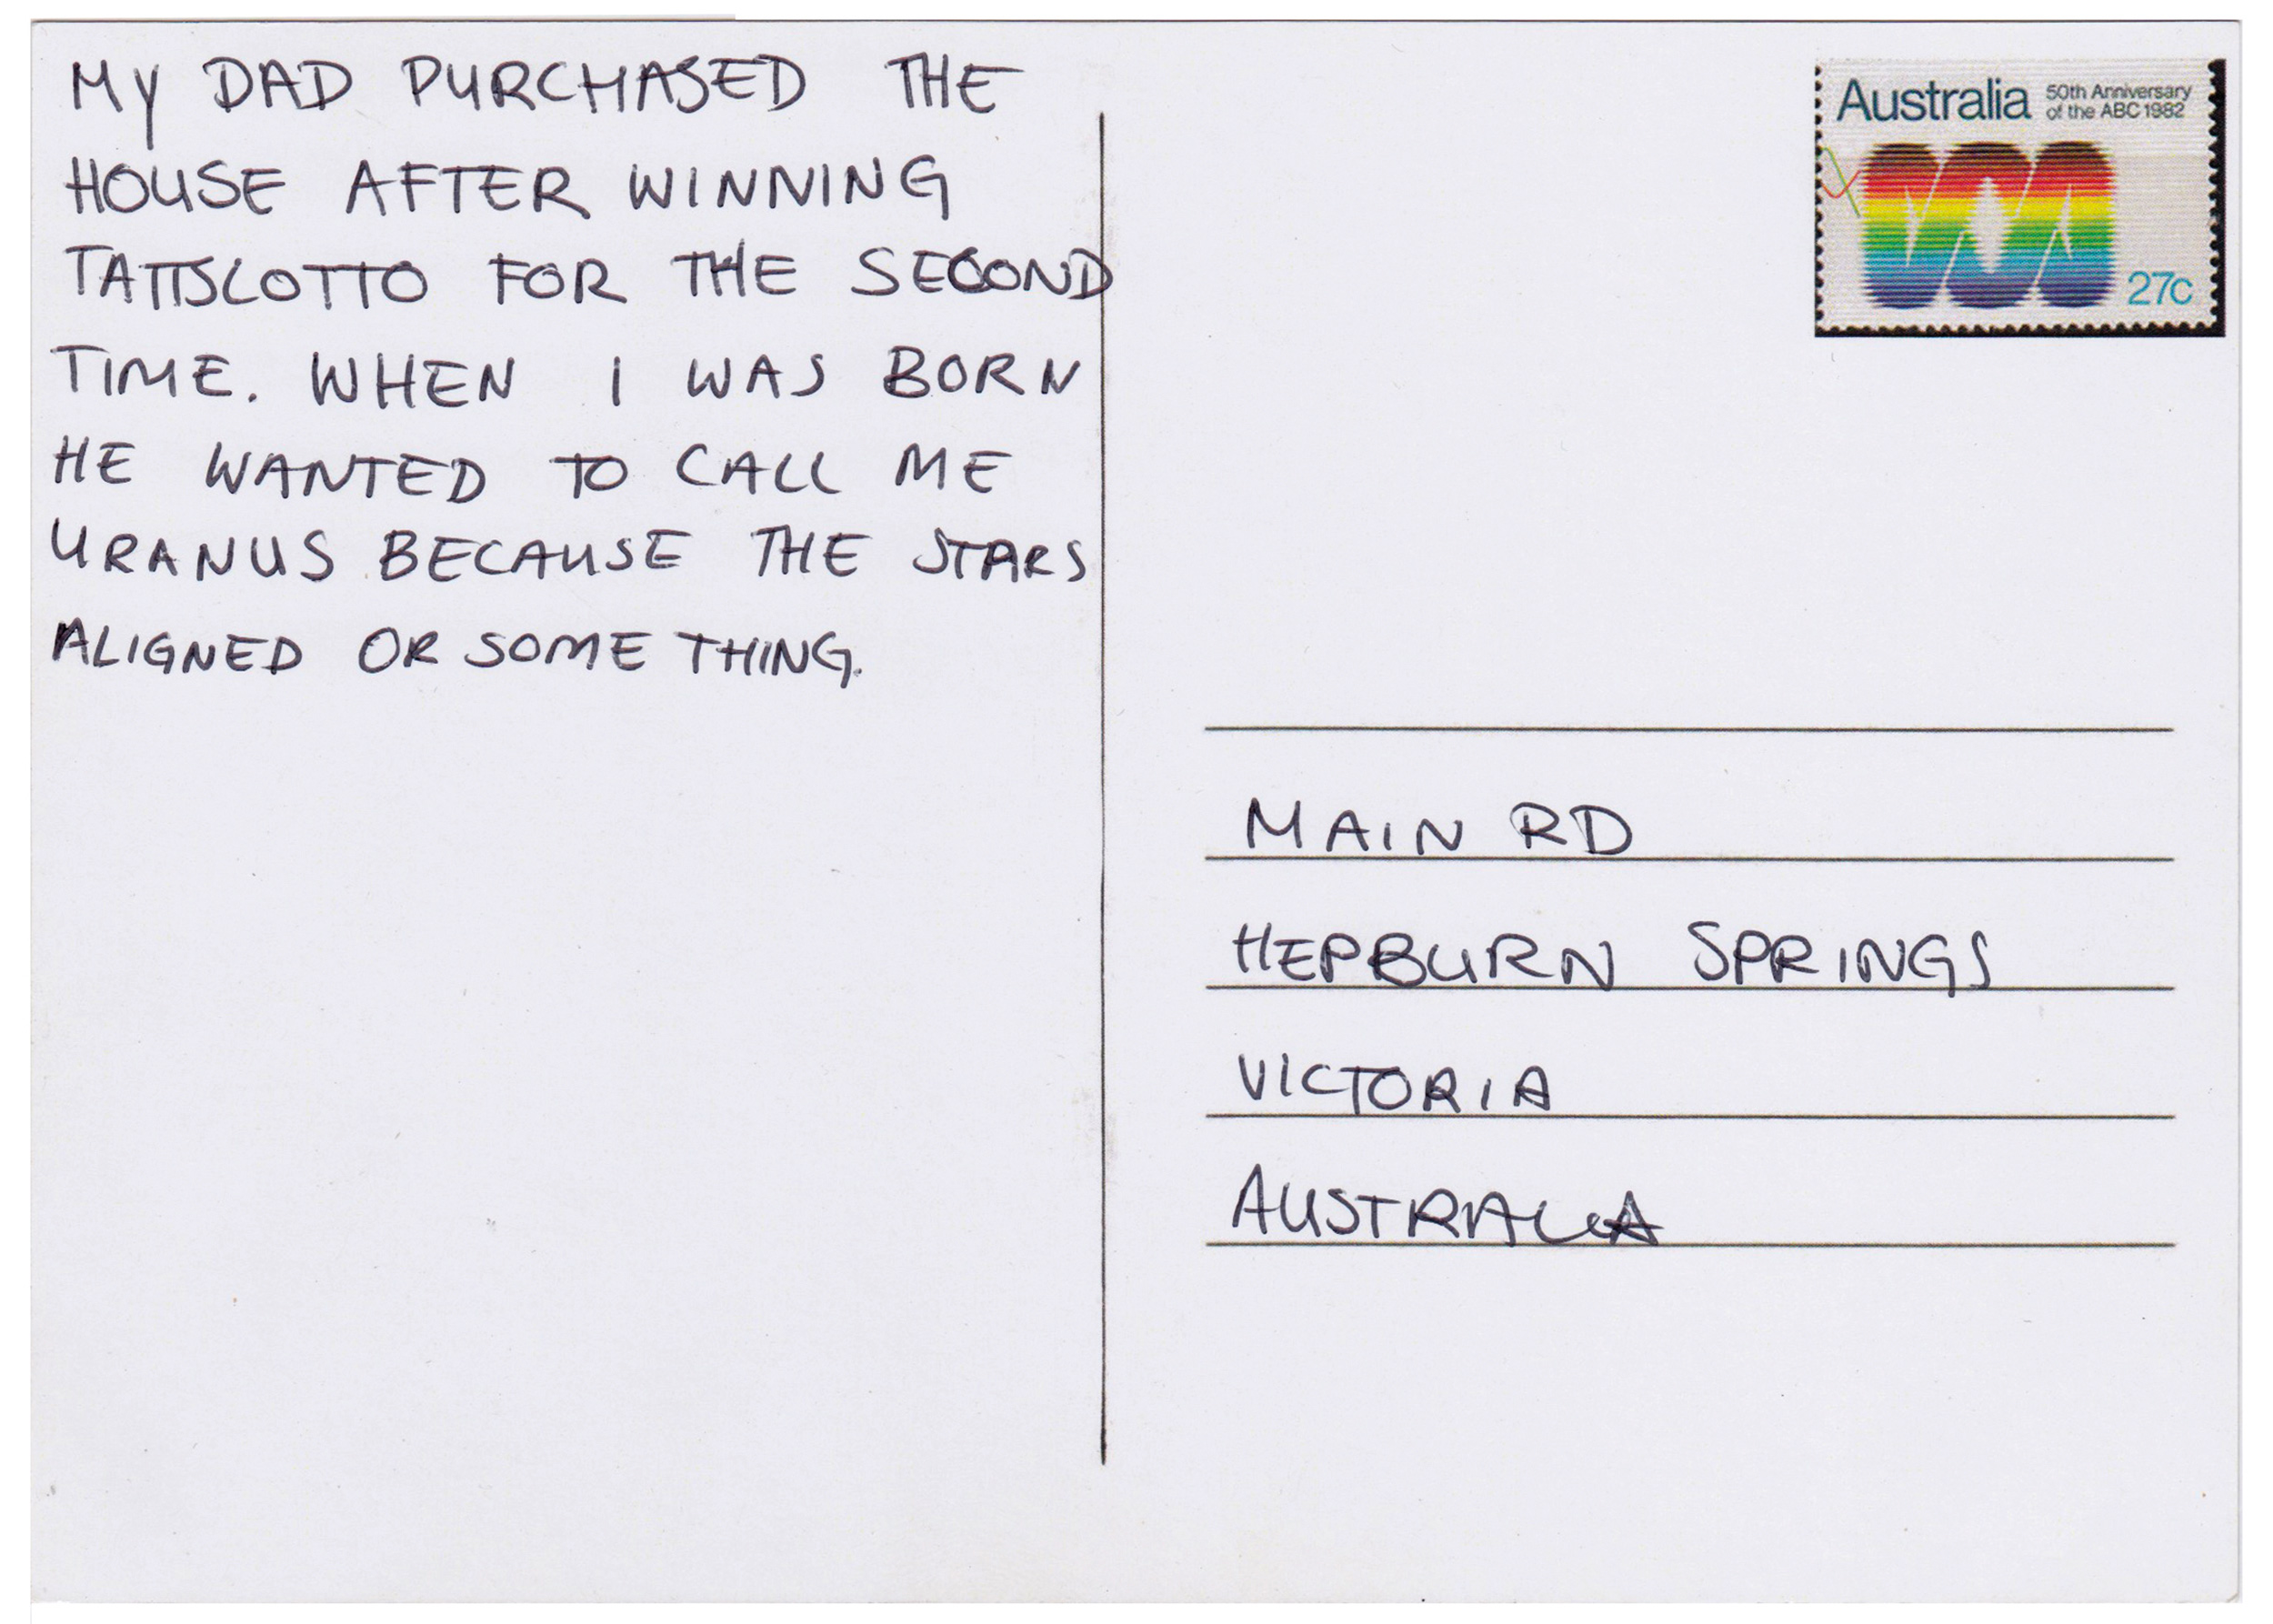 MY DAD PURCHASED THE
HOUSE AFTER WINNING
TATTSLOTTO FOR THE SECOND
TIME. WHEN I WAS BORN
HE WANTED TO CALL ME
URANUS BECAUSE THE STARS
ALIGNED OR SOMETHING.
Australia
50th Anniversary
of the ABC 1982
27c
MAIN RD
HEPBURN SPRINGS
VICTORIA
AUSTRALIA